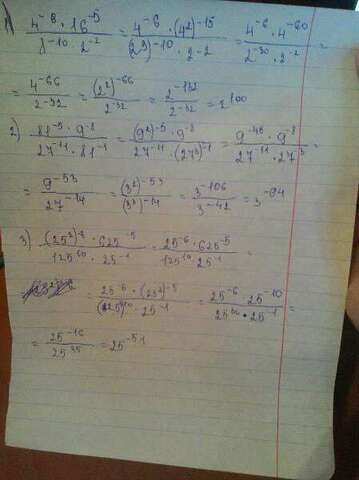 1) 4^-8 · 16^-5 / 8^-10 · 2^-2 = 4^-6 · (4^2)^-15 / (2^3)^-10 · 2-2 = 4^-6 · 4^-60 / 2^-30 · 2^-2 =
= 4^-66 / 2^-32 = (2^2)^-66 / 2^-32 = 2^-132 / 2^-32 = 2^100
2) 81^-5 · 9^-8 / 27^-11 · 81^-1 = (9^2)^-5 · 9^-8 / 27^-11 · (27^3)^-1 = 9^-45 · 9^-8 / 27^-11 · 27^3 =
= 9^-53 / 27^-14 = (3^2)^-53 / (3^3)^-14 = 3^-106 / 3^-42 = 3^-64
3) (25^2)^-8 · 625^-5 / 125^10 · 25^-1 = 25^-6 · 625^-5 / 125^10 · 25^-1 =
25^-6 · (25^2)^-5 / · 25^-1 = 25^-6 · 25^-10 / · 25^-1 =
= 25^-16 / 25^35 = 25^-51